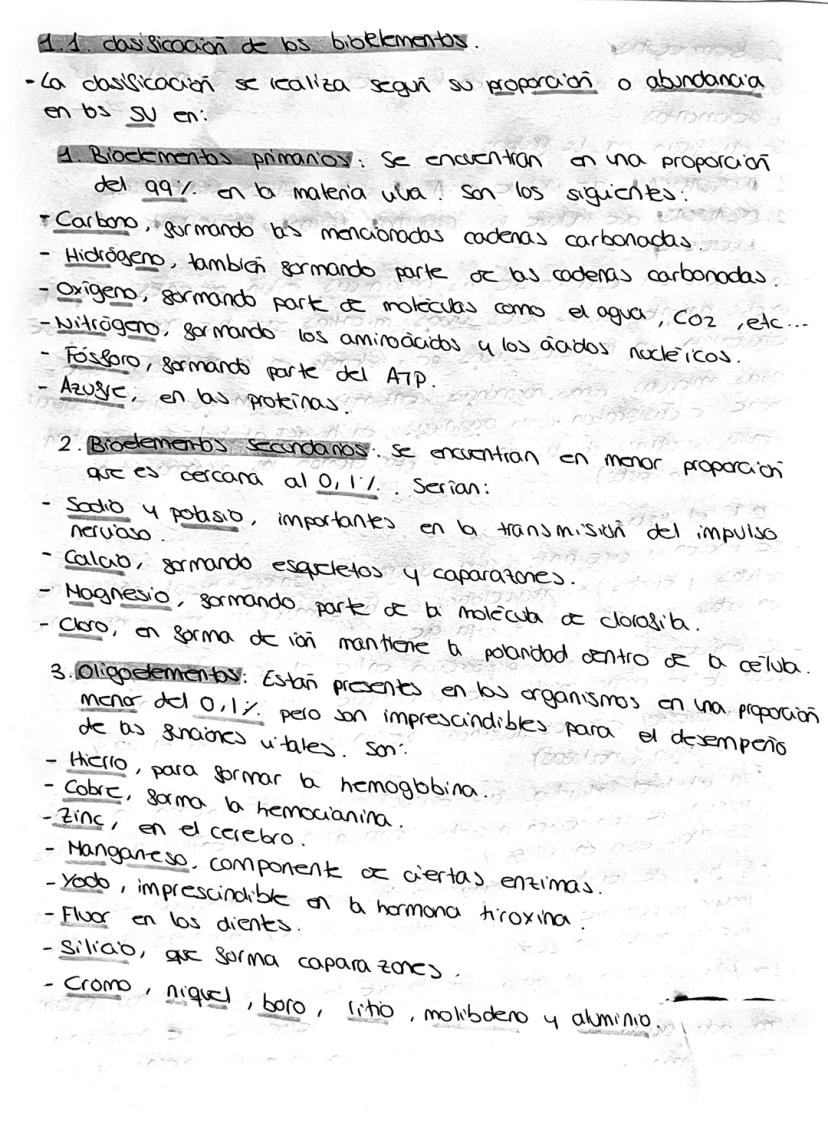 1.1. Clasificación de los bioelementos.
- La clasificación se realiza según su proporción o abundancia
en los SV en:
1. Bioelementos primarios: Se encuentran en una proporción
del 99% en la materia viva. Son los siguientes:
- Carbono, formando las mencionadas cadenas carbonadas.
- Hidrógeno, también formando parte de las cadenas carbonadas.
- Oxígeno, formando parte de moléculas como el agua, CO2, etc...
- Nitrógeno, formando los aminoácidos y los ácidos nucléicos.
- Fósforo, formando parte del ATP.
- Azufre, en las proteínas.
2. Bioelementos secundarios: Se encuentran en menor proporción
que es cercana al 0,1%. Serían:
- Sodio y potasio, importantes en la transmisión del impulso
nervioso.
- Calcio, formando esqueletos y caparazones.
- Magnesio, formando parte de la molécula de clorofila.
- Cloro, en forma de ión mantiene la polaridad dentro de la célula.
3. Oligoelementos: Están presentes en los organismos en una proporción
menor del 0,1% pero son imprescindibles para el desempeño
de las funciones vitales. Son:
- Hierro, para formar la hemoglobina.
- Cobre, forma la hemocianina.
- Zinc, en el cerebro.
- Manganeso, componente de ciertas enzimas.
- Yodo, imprescindible en la hormona tiroxina.
- Fluor en los dientes.
- Silicio, que forma caparazones.
- Cromo, niquel, boro, litio, molibdeno y aluminio.